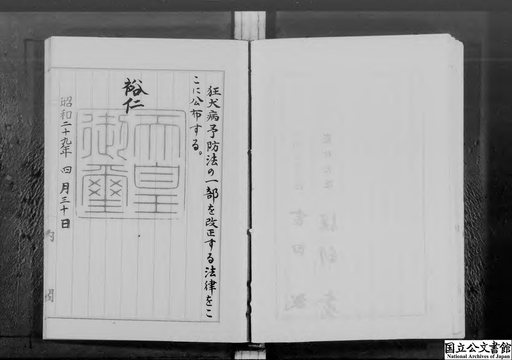 狂犬病予防法の一部を改正する法律をこ
こに公布する。
裕仁
天皇
御璽
昭和二十九年 四月三十日
内閣
国立公文書館
National Archives of Japan